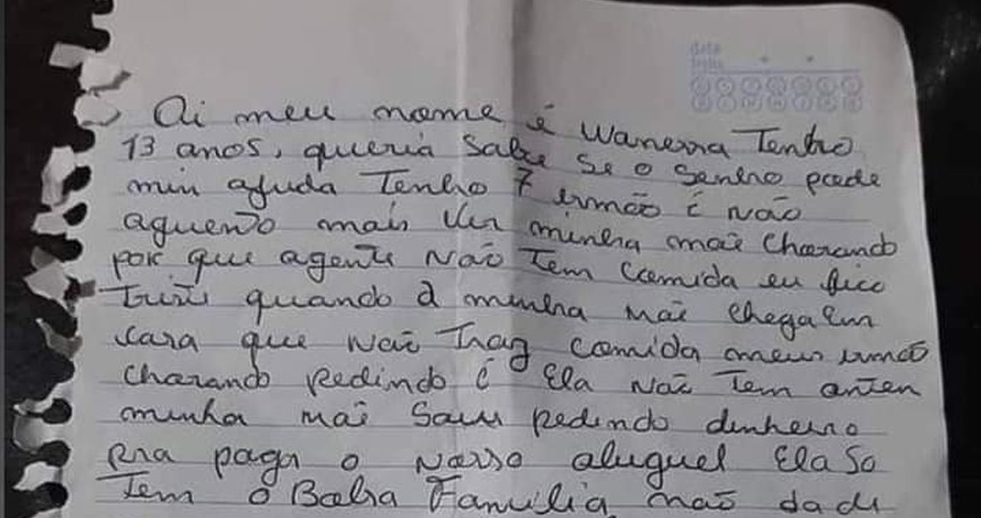 data
Oi meu nome é Wanessa Tenho
13 anos, queria Sabe Se o Senho pode
min ajuda Tenho 7 irmão é não
aquento mais Ver minha mãe Chorando
por que agente Não Tem Comida eu fico
Triste quando a minha Mãe Chega Em
casa que Não Traz Comida meus irmão
Chorando Pedindo é Ela Não Tem onten
minha Mãe Saiu Pedindo dinheiro
Pra paga o Nosso aluguel Ela So
Tem o Bolsa Familia não da di